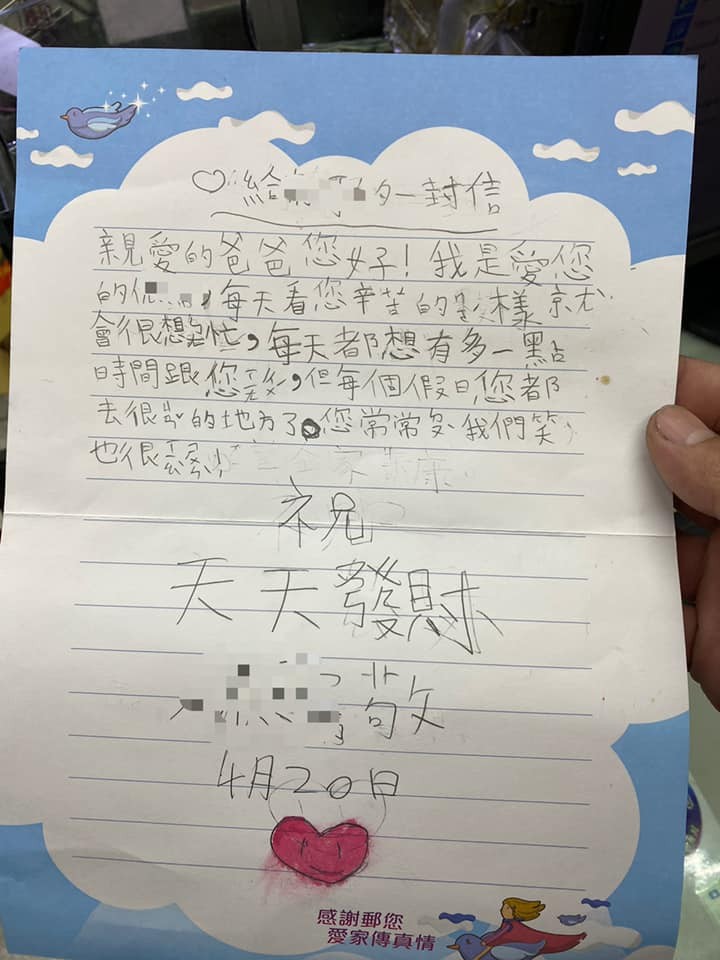 ♡給的一封信
親愛的爸爸您好！我是愛您
的，每天看您辛苦的樣就
會很想忙，每天都想有多一點
時間跟您，但每個假日您都
去很的地方了。您常常我們笑
也很
祝
天天發財
敬
4月20日
感謝郵您
愛家傳真情